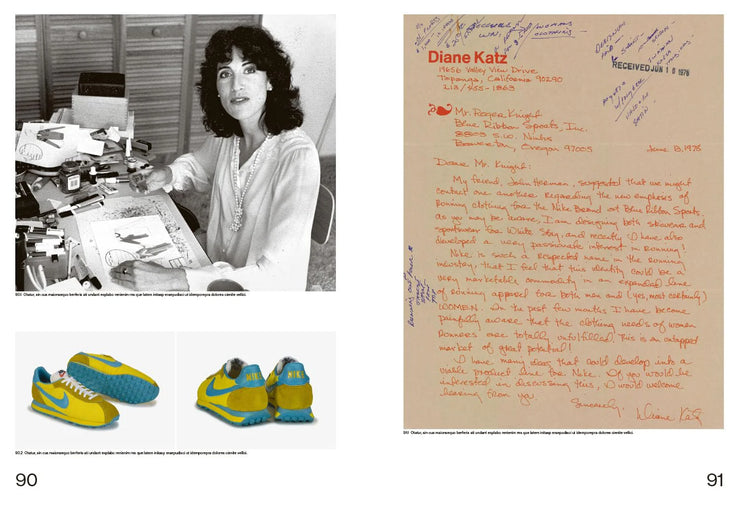 901 Otatur, sin cus maionsequo berferia sit undant explabo. renienim mo que latem intiasp ersepudisci ut idemporepra dolores ciende vellici.
NIKE
NIKE
90.2 Otatur, sin cus maionsequo berferia sit undant explabo. renienim mo que latem intiasp ersepudisci ut idemporepra dolores ciende vellici.
90
Diane Katz
19656 Valley View Drive
Topanga, California 90290
213/455-1863
RECEIVED JUN 10 1978
Mr. Roger Knight
Blue Ribbon Sports, Inc.
S.W. Nimbus
Beaverton, Oregon 97005
June 8, 1978
Dear Mr. Knight:
My friend, John Herman, suggested that we might
contact one another regarding the new emphasis of
running clothing for the Nike Brand at Blue Ribbon Sports.
As you may be aware, I am designing both skiwear and
sportswear for White Stag, and recently I have also
developed a very passionate interest in running!
Nike is such a respected name in the running
industry, that I feel that this identity could be a
very marketable commodity in an expanded line
of running apparel for both men and (yes, most certainly)
WOMEN. In the past few months I have become
painfully aware that the clothing needs of women
runners are totally unfulfilled. This is an untapped
market of great potential!
I have many ideas that could develop into a
viable product line for Nike. If you would be
interested in discussing this, I would welcome
hearing from you.
Sincerely,
Diane Katz
911 Otatur, sin cus maionsequo berferia sit undant explabo. renienim mo que latem intiasp ersepudisci ut idemporepra dolores ciende vellici.
91